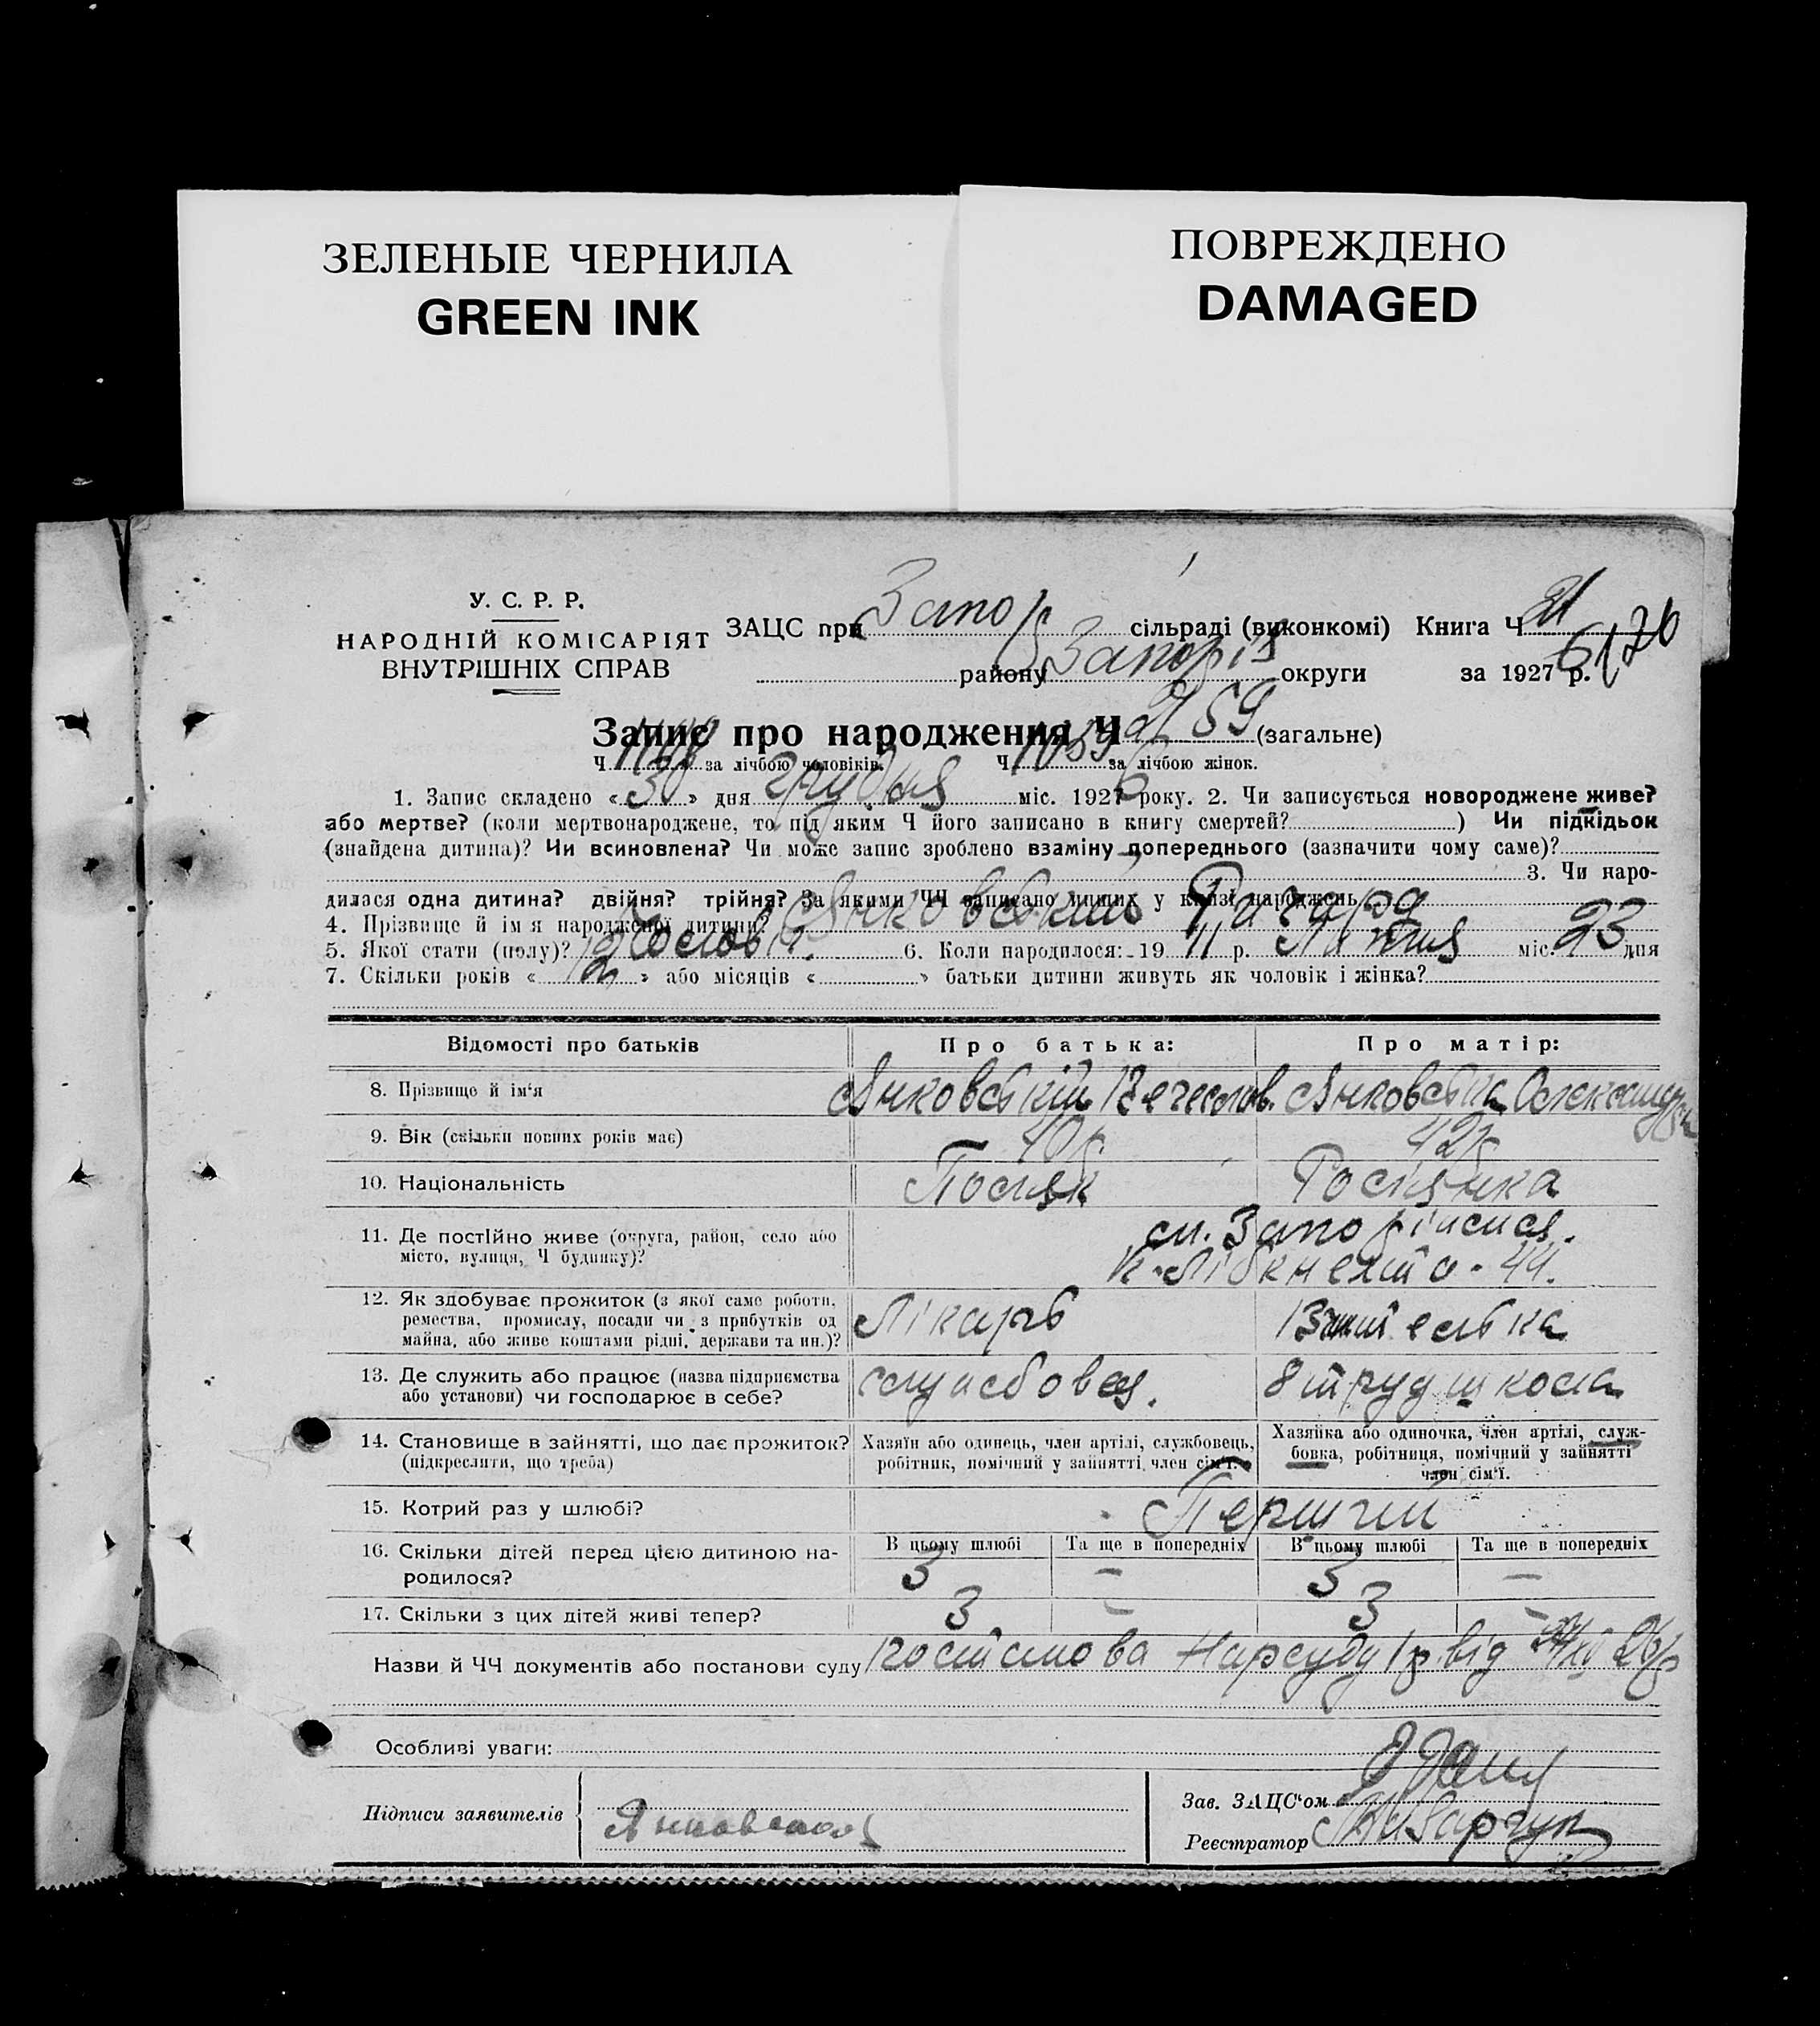 ЗЕЛЕНЫЕ ЧЕРНИЛА
GREEN INK
ПОВРЕЖДЕНО
DAMAGED
У. С. Р. Р.
НАРОДНІЙ КОМІСАРІЯТ
ВНУТРІШНІХ СПРАВ
ЗАЦС при Запор сільраді (виконкомі) Книга Ч 21
району Запоріз округи за 1927 р. 6
Запис про народження Ч 2159 (загальне)
Ч за лічбою чоловіків. Ч 1059 за лічбою жінок.
1. Запис складено «30» дня грудня міс. 1927 6 року. 2. Чи записується новороджене живе?
або мертве? (коли мертвонароджене, то під яким Ч його записано в книгу смертей? ) Чи підкідьок
(знайдена дитина)? Чи всиновлена? Чи може запис зроблено взаміну попереднього (зазначити чому саме)?
3. Чи наро-
дилася одна дитина? двійня? трійня? За якими ЧЧ записано инших у книзі народжень
4. Прізвище й ім'я народженої дитини? Янковський Ричард
5. Якої стати (полу)? Чоловіч. 6. Коли народилося: 19 11 р. Липня міс. 23 дня
7. Скільки років «12» або місяців « » батьки дитини живуть як чоловік і жінка?
Відомості про батьків Про батька: Про матір:
8. Прізвище й ім'я Янковській Вечеслав. Янковська Олександра
9. Вік (скільки повних років має) 40 р. 42 р.
10. Національність Поляк Росіянка
11. Де постійно живе (округа, район, село або
місто, вулиця, Ч будинку)?
м. Запоріжжя.
К. Лібкнехта - 44.
12. Як здобуває прожиток (з якої саме роботи,
ремества, промислу, посади чи з прибутків од
майна, або живе коштами рідні, держави та ин.)?
Лікарь Вчителька
13. Де служить або працює (назва підприємства
або установи) чи господарює в себе?
службовец. 8 труд школа
14. Становище в зайнятті, що дає прожиток?
(підкреслити, що треба)
Хазяїн або одинець, член артілі, службовець,
робітник, помічний у зайнятті член сім'ї.
Хазяйка або одиночка, член артілі, служ-
бовка, робітниця, помічний у зайнятті
член сім'ї.
15. Котрий раз у шлюбі? Перший
16. Скільки дітей перед цією дитиною на-
родилося?
В цьому шлюбі Та ще в попередніх В цьому шлюбі Та ще в попередніх
3 – 3 –
17. Скільки з цих дітей живі тепер? 3 – 3 –
Назви й ЧЧ документів або постанови суду постанова Нарсуду від
Особливі уваги:
Підписи заявителів Янковская
Зав. ЗАЦС'ом
Реєстратор